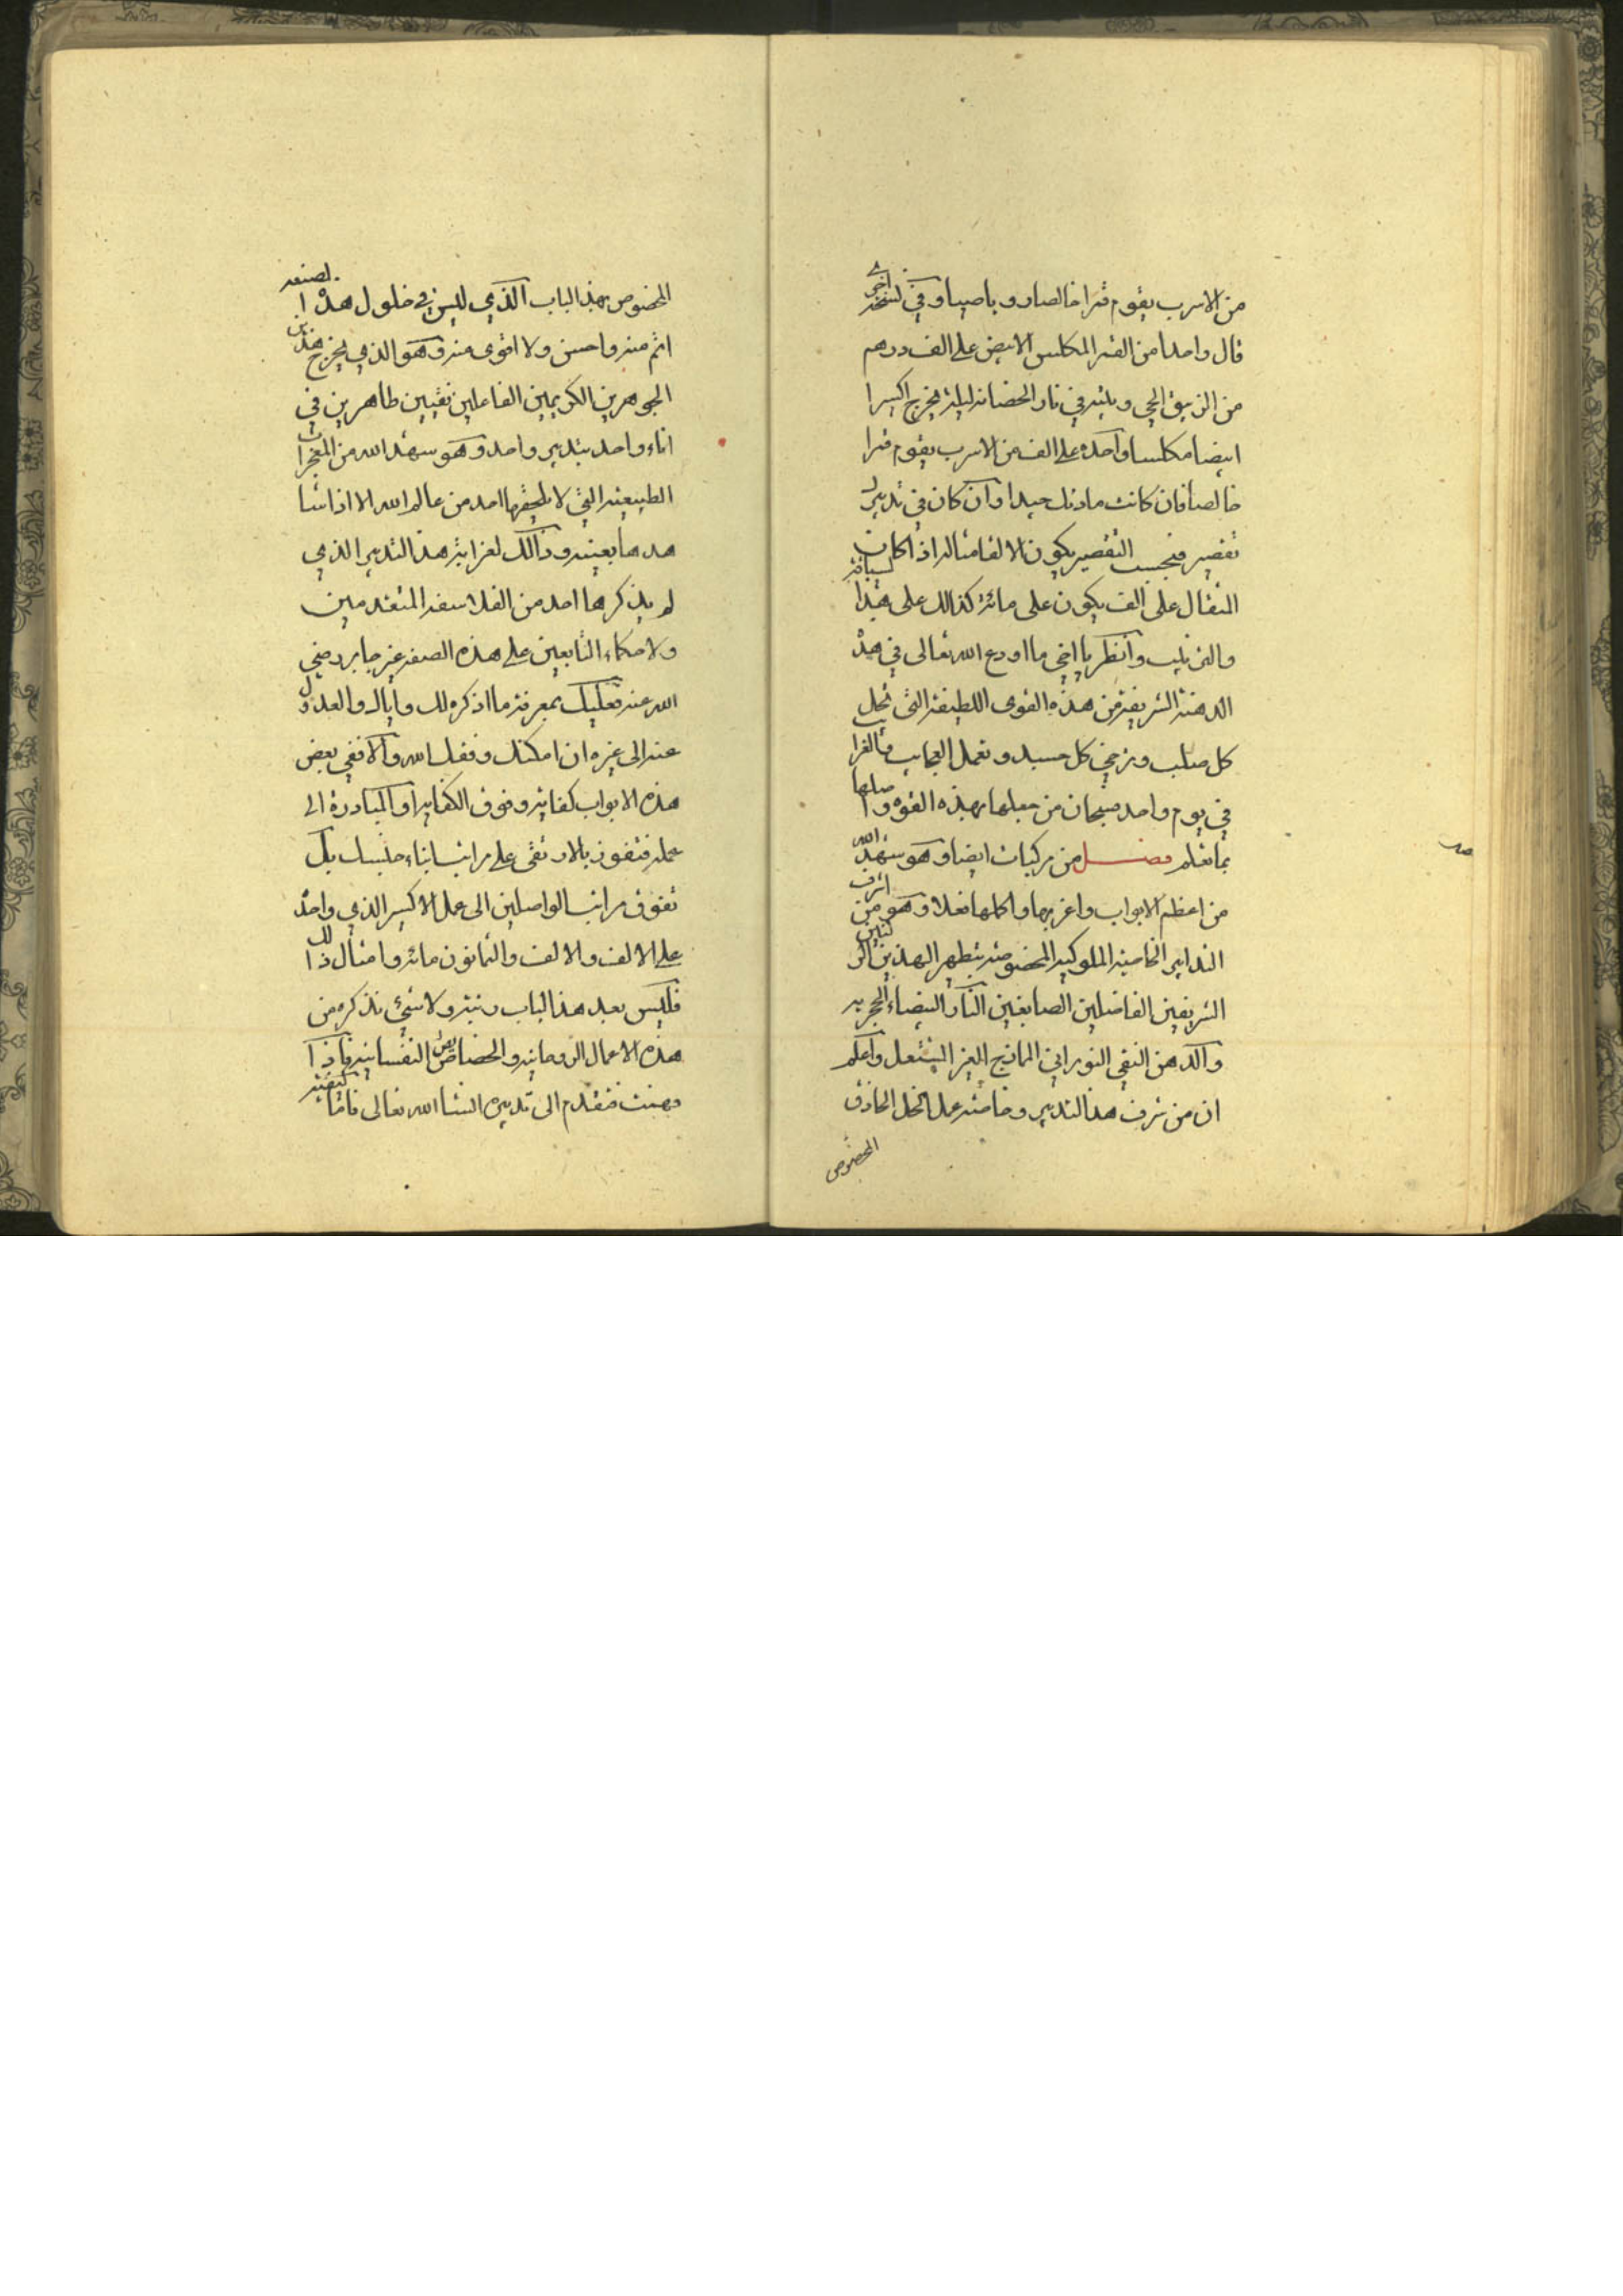 من الاسرب يقوم قمرا خالصا روباصيا وفي نسخة اخرى
قال واحدا من القمر المكلس الابيض على الف درهم
من الزيبق الحي ويبيته في نار الحضانه ليلة يخرج اكسيرا
ابيضا مكلسا واحده على الف من الاسرب يقوم قمرا
خالصا فان كانت مادتك جيدا وان كان في تدبيرك
تقصير فبحسب التقصير يكون الالقا مثاله اذا كان
المثقال على الف يكون على مائة كذالك على هذا
وانظر يا اخي ما اودع الله تعالى في هذه
الدهنة الشريفة من هذه القوى اللطيفة التي تحل
كل صلب وترخي كل جسد وتعمل العجايب
في يوم واحد فسبحان من جعلها بهذه القوه واصلها
بما تعلم فصل من مركبات ايضا وهو شهد الله
من اعظم الابواب واغربها واكملها فعلا وهو من اشرف
التدابير الخاصية الملوكيه المخصوصة بتطهير الهذين الركنين
الشريفين الفاضلين الصابغين النار البيضاء الحجريه
والدهن النقي النوراني المازج الغير المشتعل واعلم
ان من شرف هذا التدبير وخاصته عمل الخل الحاذق
المخصوص
المخصوص بهذا الباب الذي ليس في خلول هذا الصنعه
اتم منه واحسن ولا اقوى منه وهو الذي يخرج هذين
الجوهرين الكريمين الفاعلين نقيين طاهرين في
اناء واحد بتدبير واحد وهو شهد الله من المعجزات
الطبيعية التي لا يلحقها احد من عالم الله الا اذا شا
بعينه وذالك لغرابة هذا التدبير الذي
لم يذكرها احد من الفلاسفه المتقدمين
ولا حكماء التابعين على هذه الصفه غير جابر رضي
الله عنه فعليك بمعرفة ما اذكره لك واياك والعدول
عنه الى غيره ان امكنك وفقك الله والا ففي بعض
هذه الابواب كفاية وفوق الكفاية او المبادرة الى
عمله فتفوز بالارتقى على مراتب ابناء جنسك بل
تفوق مراتب الواصلين الى عمل الاكسير الذي واحد
على الالف والالف والثمانون مائه وامثال ذالك
فليس بعد هذا الباب رتبة ولا شيئ نذكره من
هذه الاعمال الروحانيه والخصائص النفسانيه فاذا
فهمت فتقدم الى تدبيره انشا الله تعالى فاما كيفية